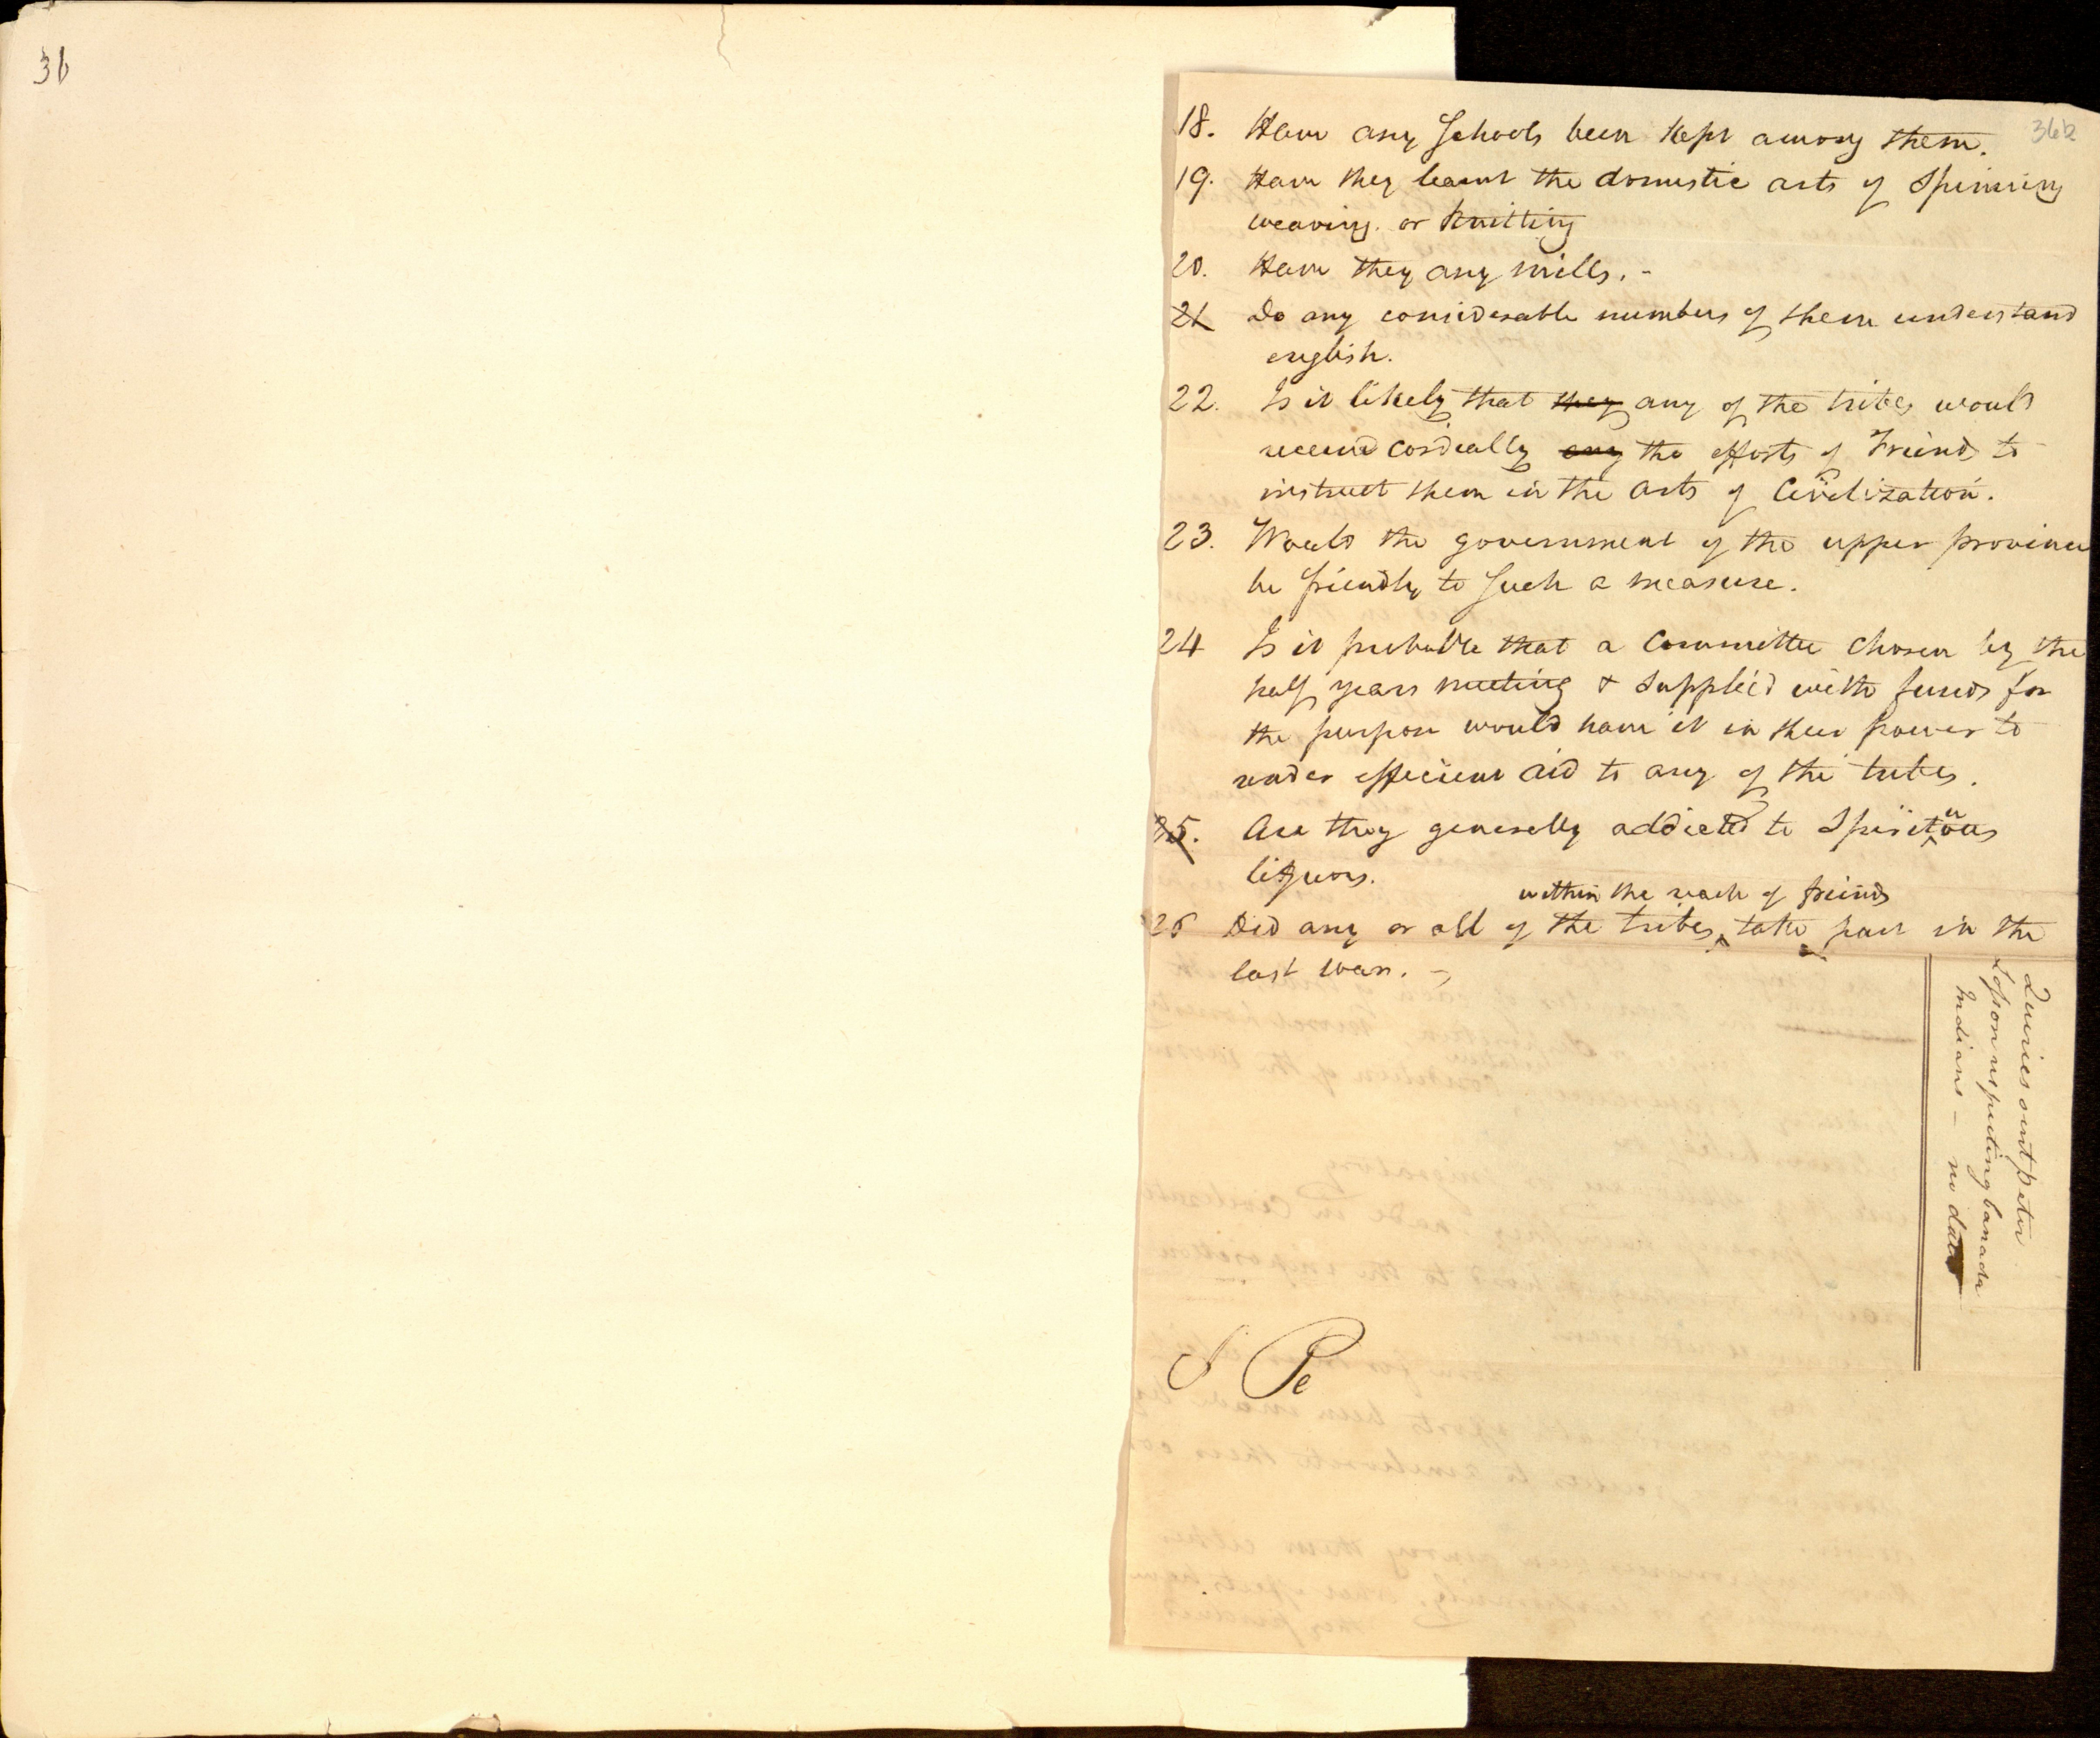 36
36b
18. Have any Schools been Kept among them.
19. Have they learnt the domestic arts of Spinning
weaving. or Knitting
20. Have they any mills. -
21 Do any considerable numbers of them understand
english.
22. Is it likely that they any of the tribes would
receive cordially any the efforts of Friends to
instruct them in the arts of Civilization.
23. Would the government of the upper province
be friendly to Such a measure.
24 Is it probable that a Committee chosen by the
half years meeting & Supplied with funds for
the purpose would have it in their power to
render efficient aid to any of the tribes.
25. Are they generally addicted to Spirituous
liquors.
within the reach of friends
26 Did any or all of the tribes ^ take part in the
last war. -
Queries sent peter
Losson respecting Canada
Indians - no date
Pe